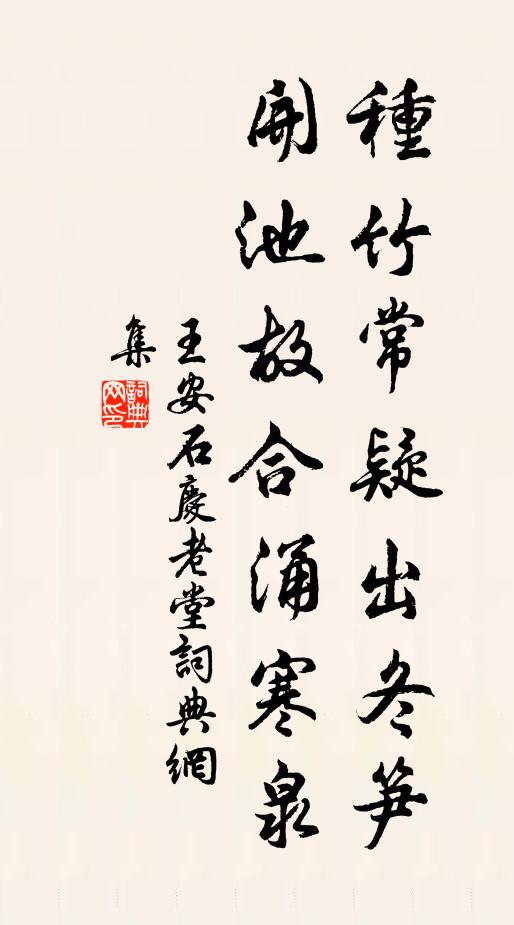 種竹常疑出冬笋
開池故合涌寒泉
王安石慶老堂詞典網
集
詞典网印